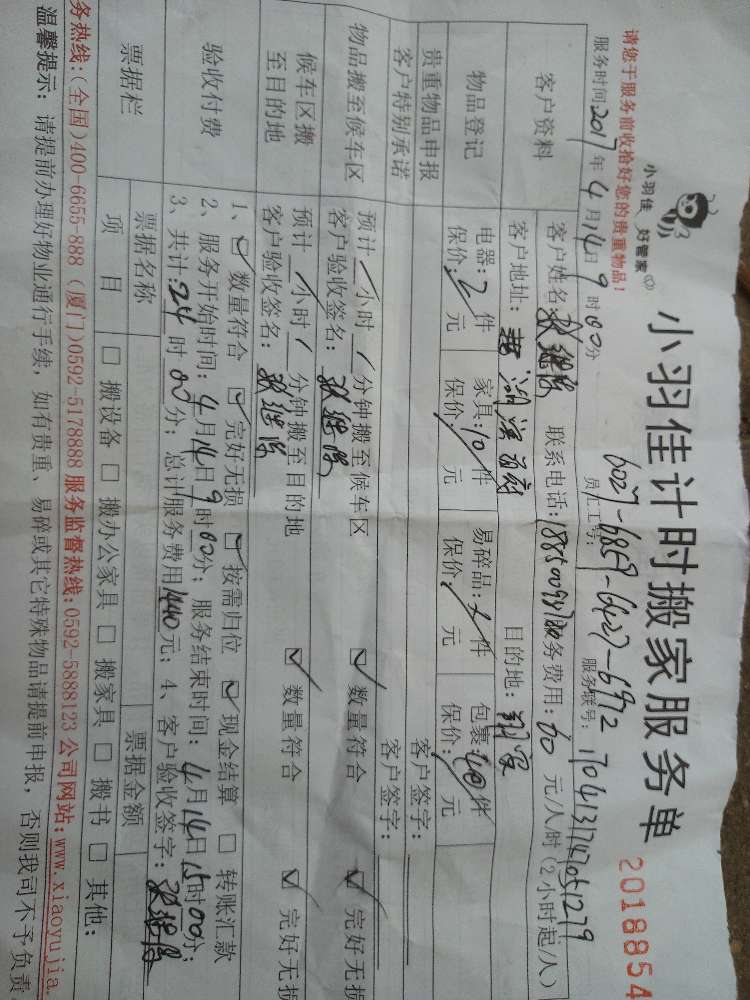 小羽佳 好管家
小羽佳计时搬家服务单
2018854
请您于服务前收拾好您的贵重物品!
6027-6859-6427-6972
服务时间:2017年4月14日9时00分 员工工号: 服务联号:
客户资料 客户姓名 联系电话: 服务费用:60元/人时(2小时起/人)
客户地址: 目的地:翔安
物品登记 电器:2件 家具:10件 易碎品: 件 包裹: 件
保价: 元 保价: 元 保价: 元 保价: 元
贵重物品申报 客户签字:
客户特别承诺 客户签字:
物品搬至候车区 预计 小时 分钟搬至候车区 ☑数量符合 ☑完好无损
客户验收签名:
候车区搬至目的地 预计 小时 分钟搬至目的地 ☑数量符合 ☑完好无损
客户验收签名:
验收付费 1、☑数量符合 ☑完好无损 ☑按需归位 ☑现金结算 □转账汇款
2、服务开始时间:4月14日9时00分; 服务结束时间:4月14日15时00分;
3、共计:24时00分; 总计服务费用1440元; 4、客户验收签字:
票据栏 票据名称 票据金额
项目 □搬设备 □搬办公家具 □搬家具 □搬书 □其他:
务热线:(全国)400-6655-888 (厦门)0592-5178888 服务监督热线:0592-5888123 公司网站:www.xiaoyujia.
温馨提示: 请提前办理好物业通行手续, 如有贵重、易碎或其它特殊物品请提前申报, 否则我司不予负责